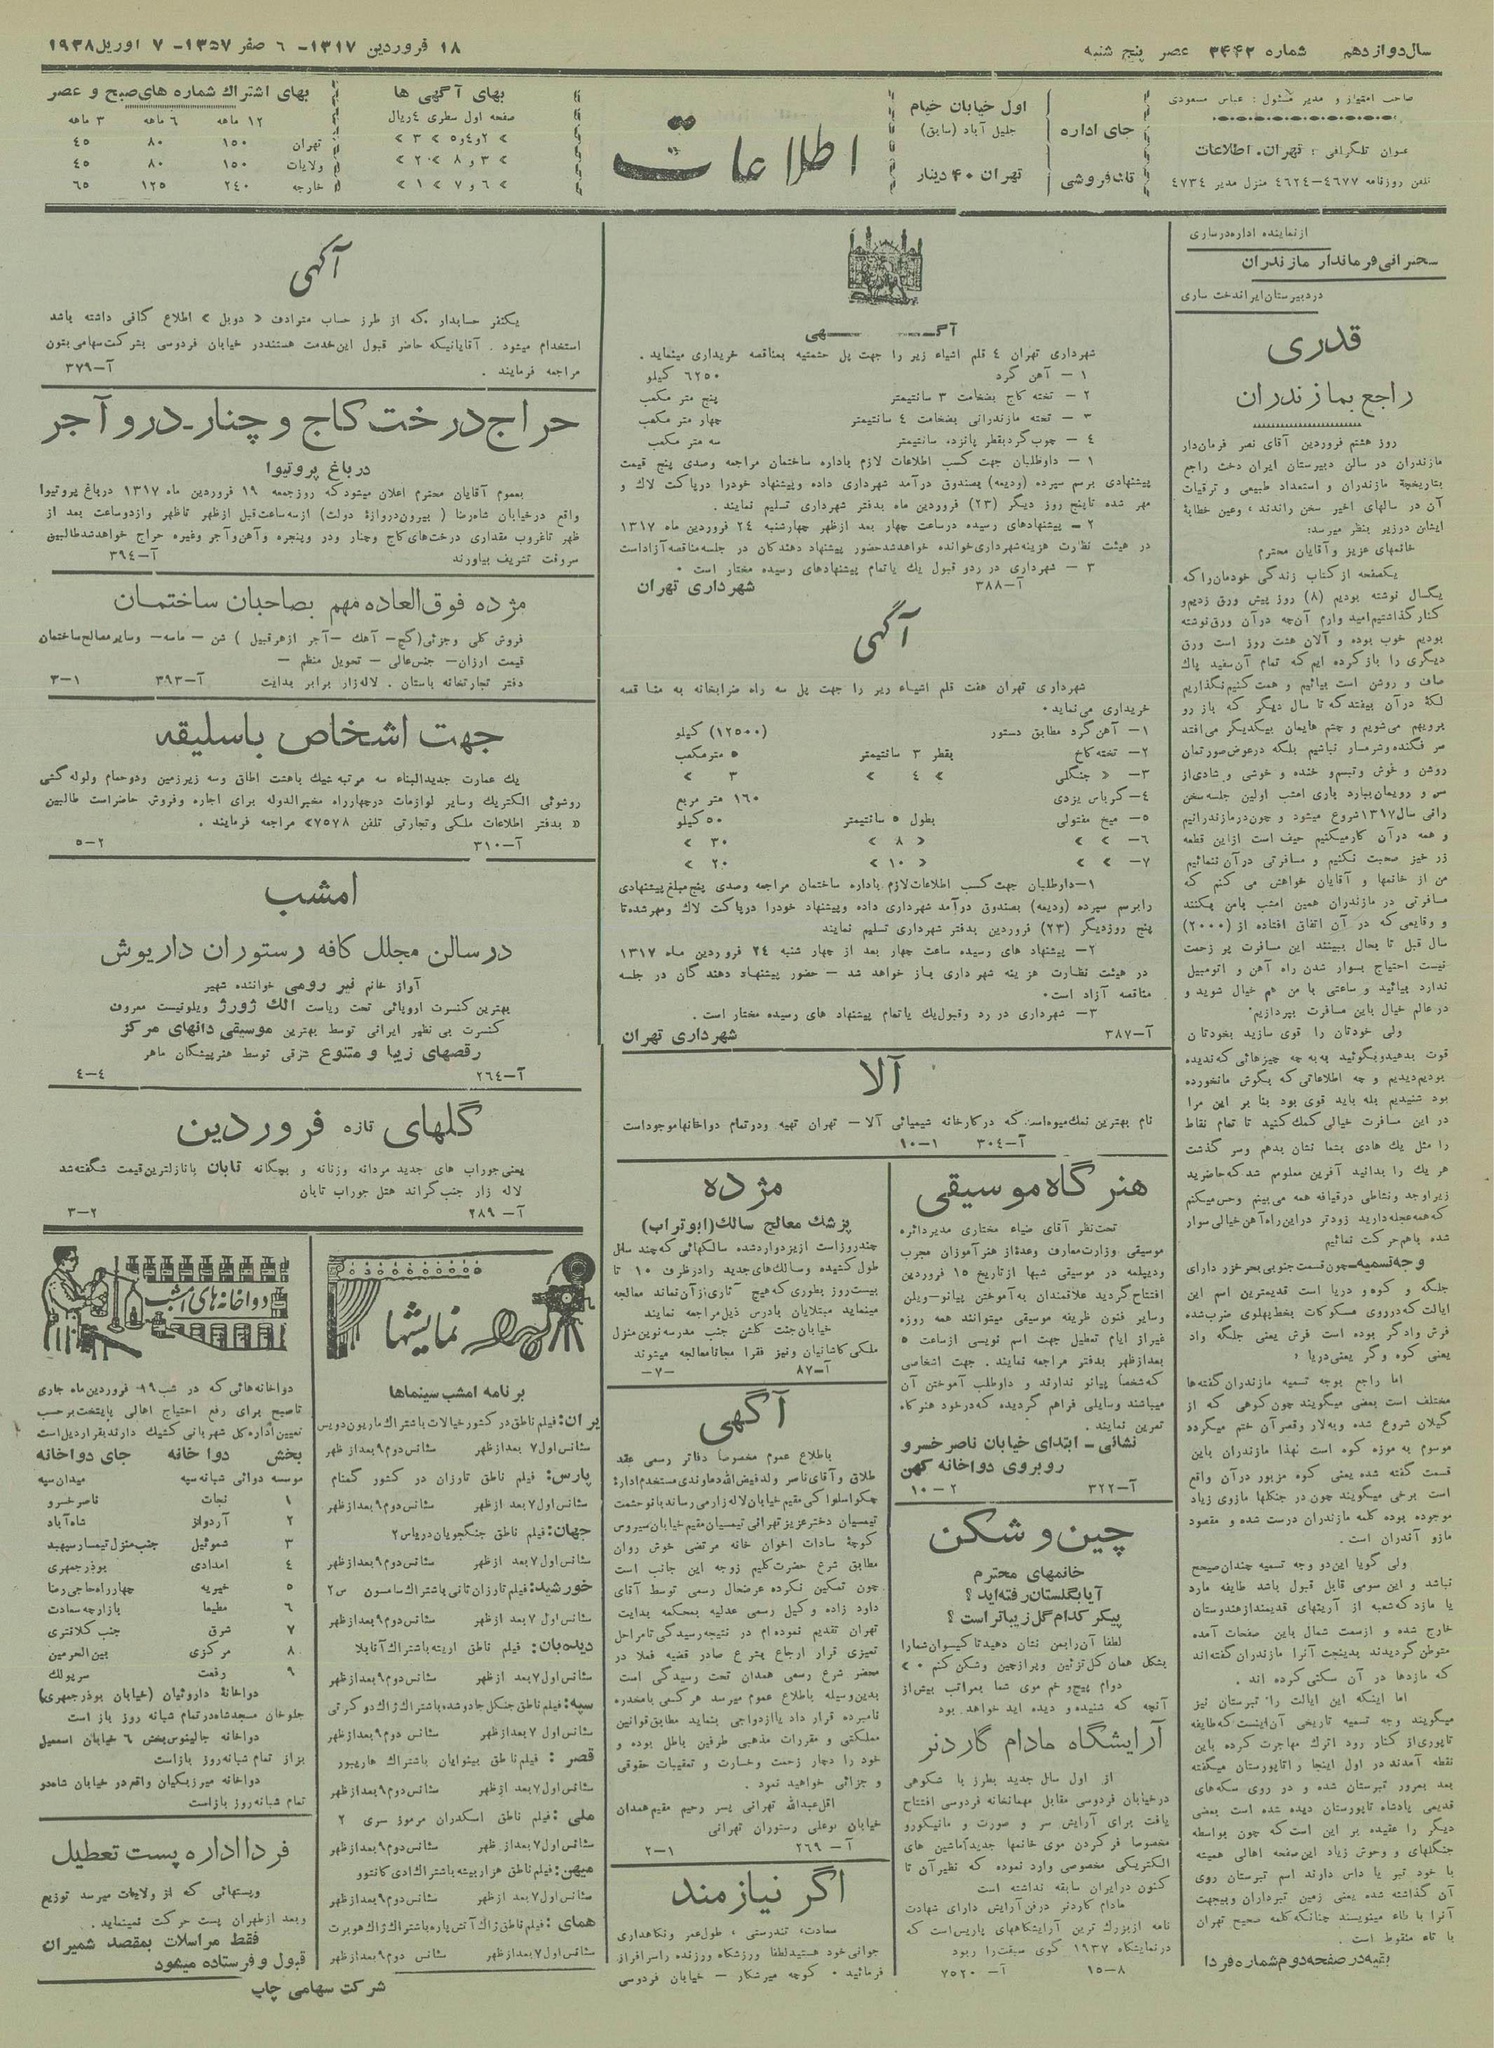 سال دوازدهم شماره ۳۴۴۲ عصر پنج شنبه
۱۸ فروردین ۱۳۱۷- ۶ صفر ۱۳۵۷- ۷ اوریل ۱۹۳۸
صاحب امتیاز و مدیر مسئول: عباس مسعودی
عنوان تلگرافی: تهران، اطلاعات
تلفن روزنامه ۴۶۷۷-۴۶۲۴ منزل مدیر ۴۷۳۴
جای اداره
اول خیابان خیام
جلیل آباد (سابق)
تکفروشی
تهران ۴۰ دینار
اطلاعات
بهای آگهی ها
صفحه اول سطری ۴ ریال
» ۲و۴و۵ » ۳ »
» ۳ و ۸ » ۲ »
» ۶ و ۷ » ۱ »
بهای اشتراك شماره های صبح و عصر
۱۲ ماهه ۶ ماهه ۳ ماهه
تهران ۱۵۰ ۸۰ ۴۵
ولایات ۱۵۰ ۸۰ ۴۵
خارجه ۲۴۰ ۱۲۵ ۶۵
از نماینده اداره در ساری
سخنرانی فرماندار مازندران
در دبیرستان ایراندخت ساری
قدری
راجع بمازندران
روز هشتم فروردین آقای نصر فرماندار
مازندران در سالن دبیرستان ایران دخت راجع
بتاریخچه مازندران و استعداد طبیعی و ترقیات
آن در سالهای اخیر سخن راندند، وعین خطابهٔ
ایشان درزیر بنظر میرسد:
خانمهای عزیز و آقایان محترم
یکصفحه از کتاب زندگی خودمان را که
یکسال نوشته بودیم (۸) روز پیش ورق زدیم و
کنار گذاشتیم امید وارم آن چه در آن ورق نوشته
بودیم خوب بوده و آلان هشت روز است ورق
دیگری را باز کرده ایم که تمام آن سفید پاك
صاف و روشن است بیائیم و همت کنیم نگذاریم
لکهٔ در آن بیفتد که تا سال دیگر که باز رو
برویهم می شویم و چشم هایمان بیکدیگر می افتد
سر فکنده و شرمسار نباشیم بلکه در عوض صورتمان
روشن و غوش وتبسم و خنده و خوشی و شادی از
سر و رویمان ببارد باری امشب اولین جلسه سخن
رانی سال ۱۳۱۷ شروع میشود و چون در مازندرانیم
و همه در آن کار میکنیم حیف است از این قطعه
زر خیز صحبت نکنیم و مسافرتی در آن ننمائیم
من از خانمها و آقایان خواهش می کنم که
مسافرتی در مازندران همین امشب بامن بکنند
و وقایعی که در آن اتفاق افتاده از (۲۰۰۰)
سال قبل تا بحال ببینند این مسافرت پر زحمت
نیست احتیاج بسوار شدن راه آهن و اتومبیل
ندارد بیائید و ساعتی با من هم خیال شوید و
در عالم خیال باین مسافرت بپردازیم.
ولی خودتان را قوی سازید بخودتان
قوت بدهید و بگوئید به به چه چیزهائی که ندیده
بودیم دیدیم و چه اطلاعاتی که بگوش مانخورده
بود شنیدیم بله باید قوی بود بنا بر این مرا
در این مسافرت خیالی کمك کنید تا تمام نقاط
را مثل یك هادی بشما نشان بدهم وسر گذشت
هر یك را بدانید آفرین معلوم شد که حاضرید
زیرا وجد ونشاطی درقیافه همه می بینم وحس میکنم
که همه عجله دارید زودتر در این راه آهن خیالی سوار
شده باهم حرکت نمائیم
وجه تسمیه-چون قسمت جنوبی بحر خزر دارای
جلگه و کوه و دریا است قدیمترین اسم این
ایالت که در روی مسکوکات بخط پهلوی ضرب شده
فرش وادگر بوده است فرش یعنی جلگه واد
یعنی کوه وگر یعنی دریا،
اما راجع بوجه تسمیه مازندران گفته ها
مختلف است بعضی میگویند چون کوهی که از
گیلان شروع شده و به لار وقصران ختم میگردد
موسوم به موزه کوه است لهذا مازندران باین
قسمت گفته شده یعنی کوه مزبور در آن واقع
است برخی میگویند چون در جنگلها مازوی زیاد
موجود بوده کلمه مازندران درست شده و مقصود
مازو آندران است.
ولی گویا این دو وجه تسمیه چندان صحیح
نباشد و این سومی قابل قبول باشد طایفه مارد
یا مازد که شعبه از آریتهای قدیمند از هندوستان
خارج شده و از سمت شمال باین صفحات آمده
متوطن گردیدند بدینجت آنرا مازندران گفته اند
که مازدها در آن سکنی کرده اند.
اما اینکه این ایالت را تبرستان نیز
میگویند وجه تسمیه تاریخی آن اینست که طایفه
تاپوری از کنار رود اترك مهاجرت کرده باین
نقطه آمدند در اول اینجا را تاپورستان میگفته
بعد بمرور تبرستان شده و در روی سکه های
قدیمی پادشاه تاپورستان دیده شده است بعضی
دیگر را عقیده بر این است که چون بواسطه
جنگلهای و وحوش زیاد این صفحه اهالی همیشه
با خود تبر یا داس دارند اسم تبرستان روی
آن گذاشته شده یعنی زمین تبرداران وبیجهت
آنرا با طاء مینویسند چنانکه کلمه صحیح تهران
با تاء منقوط است.
بقیه در صفحه دوم شماره فردا
آگهی
شهرداری تهران ۴ قلم اشیاء زیر را جهت پل حشمتیه بمناقصه خریداری مینماید.
۱ - آهن گرد ۶۲۵۰ کیلو
۲ - تخته کاج بضخامت ۳ سانتیمتر پنج متر مکعب
۳ - تخته مازندرانی بضخامت ۴ سانتیمتر چهار متر مکعب
۴ - چوب گرد بقطر پانزده سانتیمتر سه متر مکعب
۱ - داوطلبان جهت کسب اطلاعات لازم باداره ساختمان مراجعه وصدی پنج قیمت
پیشنهادی برسم سپرده (ودیعه) بصندوق درآمد شهرداری داده وپیشنهاد خودرا درپاکت لاك و
مهر شده تا پنج روز دیگر (۲۳) فروردین ماه بدفتر شهرداری تسلیم نمایند.
۲ - پیشنهادهای رسیده در ساعت چهار بعد از ظهر چهارشنبه ۲۴ فروردین ماه ۱۳۱۷
در هیئت نظارت هزینه شهرداری خوانده خواهد شد حضور پیشنهاد دهندگان در جلسه مناقصه آزاد است
۳ - شهرداری در ردو قبول یك یا تمام پیشنهادهای رسیده مختار است.
آ-۳۸۸ شهرداری تهران
آگهی
شهرداری تهران هفت قلم اشیاء زیر را جهت پل سه راه ضرابخانه به مناقصه
خریداری می نماید.
۱- آهن گرد مطابق دستور (۱۲۵۰۰) کیلو
۲- تخته کاخ بقطر ۳ سانتیمتر ۵ متر مکعب
۳- » جنگلی » ۴ » ۳ »
۴- کرباس یزدی ۱۶۰ متر مربع
۵- میخ مفتولی بطول ۵ سانتیمتر ۵۰ کیلو
۶- » » » ۸ » ۳۰ »
۷- » » » ۱۰ » ۲۰ »
۱- داوطلبان جهت کسب اطلاعات لازم باداره ساختمان مراجعه وصدی پنج مبلغ پیشنهادی
را برسم سپرده (ودیعه) بصندوق درآمد شهرداری داده وپیشنهاد خودرا درپاکت لاك ومهر شده تا
پنج روز دیگر (۲۳) فروردین بدفتر شهرداری تسلیم نمایند
۲- پیشنهاد های رسیده ساعت چهار بعد از چهار شنبه ۲۴ فروردین ماه ۱۳۱۷
در هیئت نظارت هزینه شهرداری باز خواهد شد - حضور پیشنهاد دهندگان در جلسه
مناقصه آزاد است.
۳- شهرداری در رد وقبول یك یا تمام پیشنهاد های رسیده مختار است.
آ-۳۸۷ شهرداری تهران
آلا
نام بهترین نمك میوه است که در کارخانه شیمیائی آلا - تهران تهیه ودر تمام دواخانها موجود است
آ-۳۰۴ ۱-۱۰
هنرگاه موسیقی
تحت نظر آقای ضیاء مختاری مدیر دائره
موسیقی وزارت معارف وعدهٔ از هنر آموزان مجرب
ودیپلمه در موسیقی شبها از تاریخ ۱۵ فروردین
افتتاح گردید علاقمندان به آموختن پیانو-ویلن
وسایر فنون ظریفه موسیقی میتوانند همه روزه
غیر از ایام تعطیل جهت اسم نویسی از ساعت ۵
بعد از ظهر بدفتر مراجعه نمایند. جهت اشخاصی
که شخصاً پیانو ندارند و داوطلب آموختن آن
میباشند وسایلی فراهم گردیده که در خود هنرگاه
تمرین نمایند
نشانی- ابتدای خیابان ناصر خسرو
روبروی دواخانه کهن
آ-۳۲۲ ۲-۱۰
چین و شکن
خانمهای محترم
آیا بگلستان رفته اید؟
پیکر کدام گل زیباتر است؟
لطفا آن را بمن نشان دهید تا گیسوان شما را
بشکل همان گل تزئین و پر از چین و شکن کنم »
دوام پیچ و خم موی شما بمراتب بیش از
آنچه که شنیده و دیده اید خواهد بود
آرایشگاه مادام گاردنر
از اول سال جدید بطرز با شکوهی
در خیابان فردوسی مقابل مهمانخانه فردوسی افتتاح
یافت برای آرایش سر و صورت و مانیکورو
مخصوصا فر کردن موی خانمها جدیداً ماشین های
الکتریکی مخصوصی وارد نموده که نظیر آن تا
کنون در ایران سابقه نداشته است
مادام گاردنر در فن آرایش دارای شهادت
نامه از بزرگ ترین آرایشگاههای پاریس است که
در نمایشگاه ۱۹۳۷ گوی سبقت را ربود
۸-۱۵ آ-۷۵۲۰
مژده
پزشك معالج سالك (ابوتراب)
چند روز است از یزد وارد شده سالکهائی که چند سال
طول کشیده وسالك های جدید را در ظرف ۱۰ تا
بیست روز بطوری که هیچ آثاری از آن نماند معالجه
مینماید مبتلایان بآدرس ذیل مراجعه نمایند
خیابان جنت گلشن جنب مدرسه نوین منزل
ملکی کاشانیان ونیز فقرا مجانا معالجه میشوند
آ-۸۷ -۷-
آگهی
باطلاع عموم مخصوصاً دفاتر رسمی عقد
طلاق و آقای ناصر ولد فیض الله دماوندی مستخدم اداره
چکو اسلواکی مقیم خیابان لاله زار می رساند بانو حشمت
تیمسیان دختر عزیز تهرانی تیمسیان مقیم خیابان سیروس
کوچهٔ سادات اخوان خانه مرتضی خوش روان
مطابق شرع حضرت کلیم زوجه این جانب است
چون تمکین نکرده عرضحال رسمی توسط آقای
داود زاده وکیل رسمی عدلیه بمحکمه بدایت
تهران تقدیم نموده ام در نتیجه رسیدگی تا مراحل
تمیزی قرار ارجاع بشرع صادر قضیه فعلا در
محضر شرع رسمی همدان تحت رسیدگی است
بدین وسیله باطلاع عموم میرسد هر کسی با مخدره
نامبرده قرار داد یا ازدواجی بنماید مطابق قوانین
مملکتی و مقررات مذهبی طرفین باطل بوده و
خود را دچار زحمت وخسارت و تعقیبات حقوقی
و جزائی خواهید نمود.
اقل عبدالله تهرانی پسر رحیم مقیم همدان
خیابان بوعلی رستوران تهرانی
آ-۲۶۹ ۱-۲
اگر نیازمند
سعادت، تندرستی، طول عمر ونگاهداری
جوانی خود هستید لطفا ورزشگاه ورزنده را سرافراز
فرمائید. کوچه میرشکار - خیابان فردوسی
آگهی
یکنفر حسابدار که از طرز حساب مترادف « دوبل » اطلاع کافی داشته باشد
استخدام میشود. آقایانیکه حاضر قبول این خدمت هستند در خیابان فردوسی بشرکت سهامی بتون
مراجعه فرمایند. آ-۳۷۹
حراج درخت کاج و چنار-در و آجر
در باغ پروتیوا
بعموم آقایان محترم اعلان میشود که روز جمعه ۱۹ فروردین ماه ۱۳۱۷ در باغ پروتیوا
واقع در خیابان شاهرضا (بیرون دروازهٔ دولت) از سه ساعت قبل از ظهر تا ظهر واز دو ساعت بعد از
ظهر تا غروب مقداری درخت های کاج و چنار ودر وپنجره وآهن وآجر وغیره حراج خواهد شد طالبین
سروقت تشریف بیاورند آ-۳۹۴
مژده فوق العاده مهم بصاحبان ساختمان
فروش کلی وجزئی(گچ- آهك -آجر از هر قبیل) شن - ماسه- وسایر مصالح ساختمان
قیمت ارزان- جنس عالی - تحویل منظم -
دفتر تجارتخانه باستان. لاله زار برابر بدایت آ-۳۹۳ ۱-۳
جهت اشخاص باسلیقه
یك عمارت جدید البناء سه مرتبه شیك باهشت اطاق وسه زیرزمین ودو حمام ولوله کشی
روشوئی الکتریك وسایر لوازمات در چهارراه مخبرالدوله برای اجاره وفروش حاضر است طالبین
« بدفتر اطلاعات ملکی وتجارتی تلفن ۷۵۷۸» مراجعه فرمایند.
آ-۳۱۰ ۲-۵
امشب
در سالن مجلل کافه رستوران داریوش
آواز خانم نیر رومی خواننده شهیر
بهترین کنسرت اروپائی تحت ریاست الك ژورژ ویلونیست معروف
کنسرت بی نظیر ایرانی توسط بهترین موسیقی دانهای مرکز
رقصهای زیبا و متنوع شرقی توسط هنرپیشگان ماهر
آ-۲۶۴ ۴-۴
گلهای تازه فروردین
یعنی جوراب های جدید مردانه وزنانه و بچگانه تابان با نازلترین قیمت شگفته شد
لاله زار جنب گراند هتل جوراب تابان
آ-۲۸۹ ۲-۳
نمایشها
برنامه امشب سینماها
ایران: فیلم ناطق در کشور خیالات باشتراك ماریون دویس
سئانس اول ۷ بعد از ظهر سئانس دوم ۹ بعد از ظهر
پارس: فیلم ناطق تارزان در کشور گمنام
سئانس اول ۷ بعد از ظهر سئانس دوم ۹ بعد از ظهر
جهان: فیلم ناطق جنگجویان دریا س ۲
سئانس اول ۷ بعد از ظهر سئانس دوم ۹ بعد از ظهر
خورشید: فیلم تارزان ثانی باشتراك سامسون س ۲
سئانس اول ۷ بعد از ظهر سئانس دوم ۹ بعد از ظهر
دیده بان: فیلم ناطق اریته باشتراك آنابلا
سئانس اول ۷ بعد از ظهر سئانس دوم ۹ بعد از ظهر
سپه: فیلم ناطق جنگل جادو شده باشتراك ژاك دوگرتی
سئانس اول ۷ بعد از ظهر سئانس دوم ۹ بعد از ظهر
قصر: فیلم ناطق بینوایان باشتراك هاریبور
سئانس اول ۷ بعد از ظهر سئانس دوم ۹ بعد از ظهر
ملی: فیلم ناطق اسکدران مرموز سری ۲
سئانس اول ۷ بعد از ظهر سئانس دوم ۹ بعد از ظهر
میهن: فیلم ناطق هزار بیشه باشتراك ادی کانتور
سئانس اول ۷ بعد از ظهر سئانس دوم ۹ بعد از ظهر
همای: فیلم ناطق ژاك آتش پاره باشتراك ژاك هوبرت
سئانس اول ۷ بعد از ظهر سئانس دوم ۹ بعد از ظهر
دواخانه های امشب
دواخانه هائی که در شب ۱۹ فروردین ماه جاری
تا صبح برای رفع احتیاج اهالی پایتخت بر حسب
تعیین اداره کل شهربانی کشیك دارند بقرار ذیل است
بخش دواخانه جای دواخانه
موسسه دوائی شبانه سپه میدان سپه
۱ نجات ناصر خسرو
۲ آردواز شاه آباد
۳ شموئیل جنب منزل تیمسار سپهبد
۴ امدادی بوذر جمهری
۵ خیریه چهار راه حاجی رضا
۶ مطبعا بازارچه سعادت
۷ شرق جنب کلانتری
۸ مرکزی بین الحرمین
۹ رفعت سرپولك
دواخانهٔ داروئیان (خیابان بوذر جمهری)
جلوخان مسجد شاه در تمام شبانه روز باز است
دواخانه جالینوس بخش ۶ خیابان اسمعیل
بزاز تمام شبانه روز باز است
دواخانه میرزیکیان واقع در خیابان شاهدو
تمام شبانه روز باز است
فردا اداره پست تعطیل
وپستهائی که از ولایات میرسد توزیع
وبعد از طهران پست حرکت نمینماید.
فقط مراسلات بمقصد شمیران
قبول و فرستاده میشود
شرکت سهامی چاپ